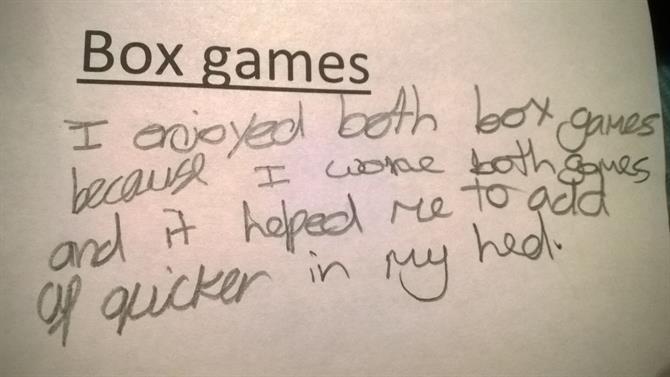 Box games
I enjoyed both box games
because I wone both games
and it helped me to add
up quicker in my hed.